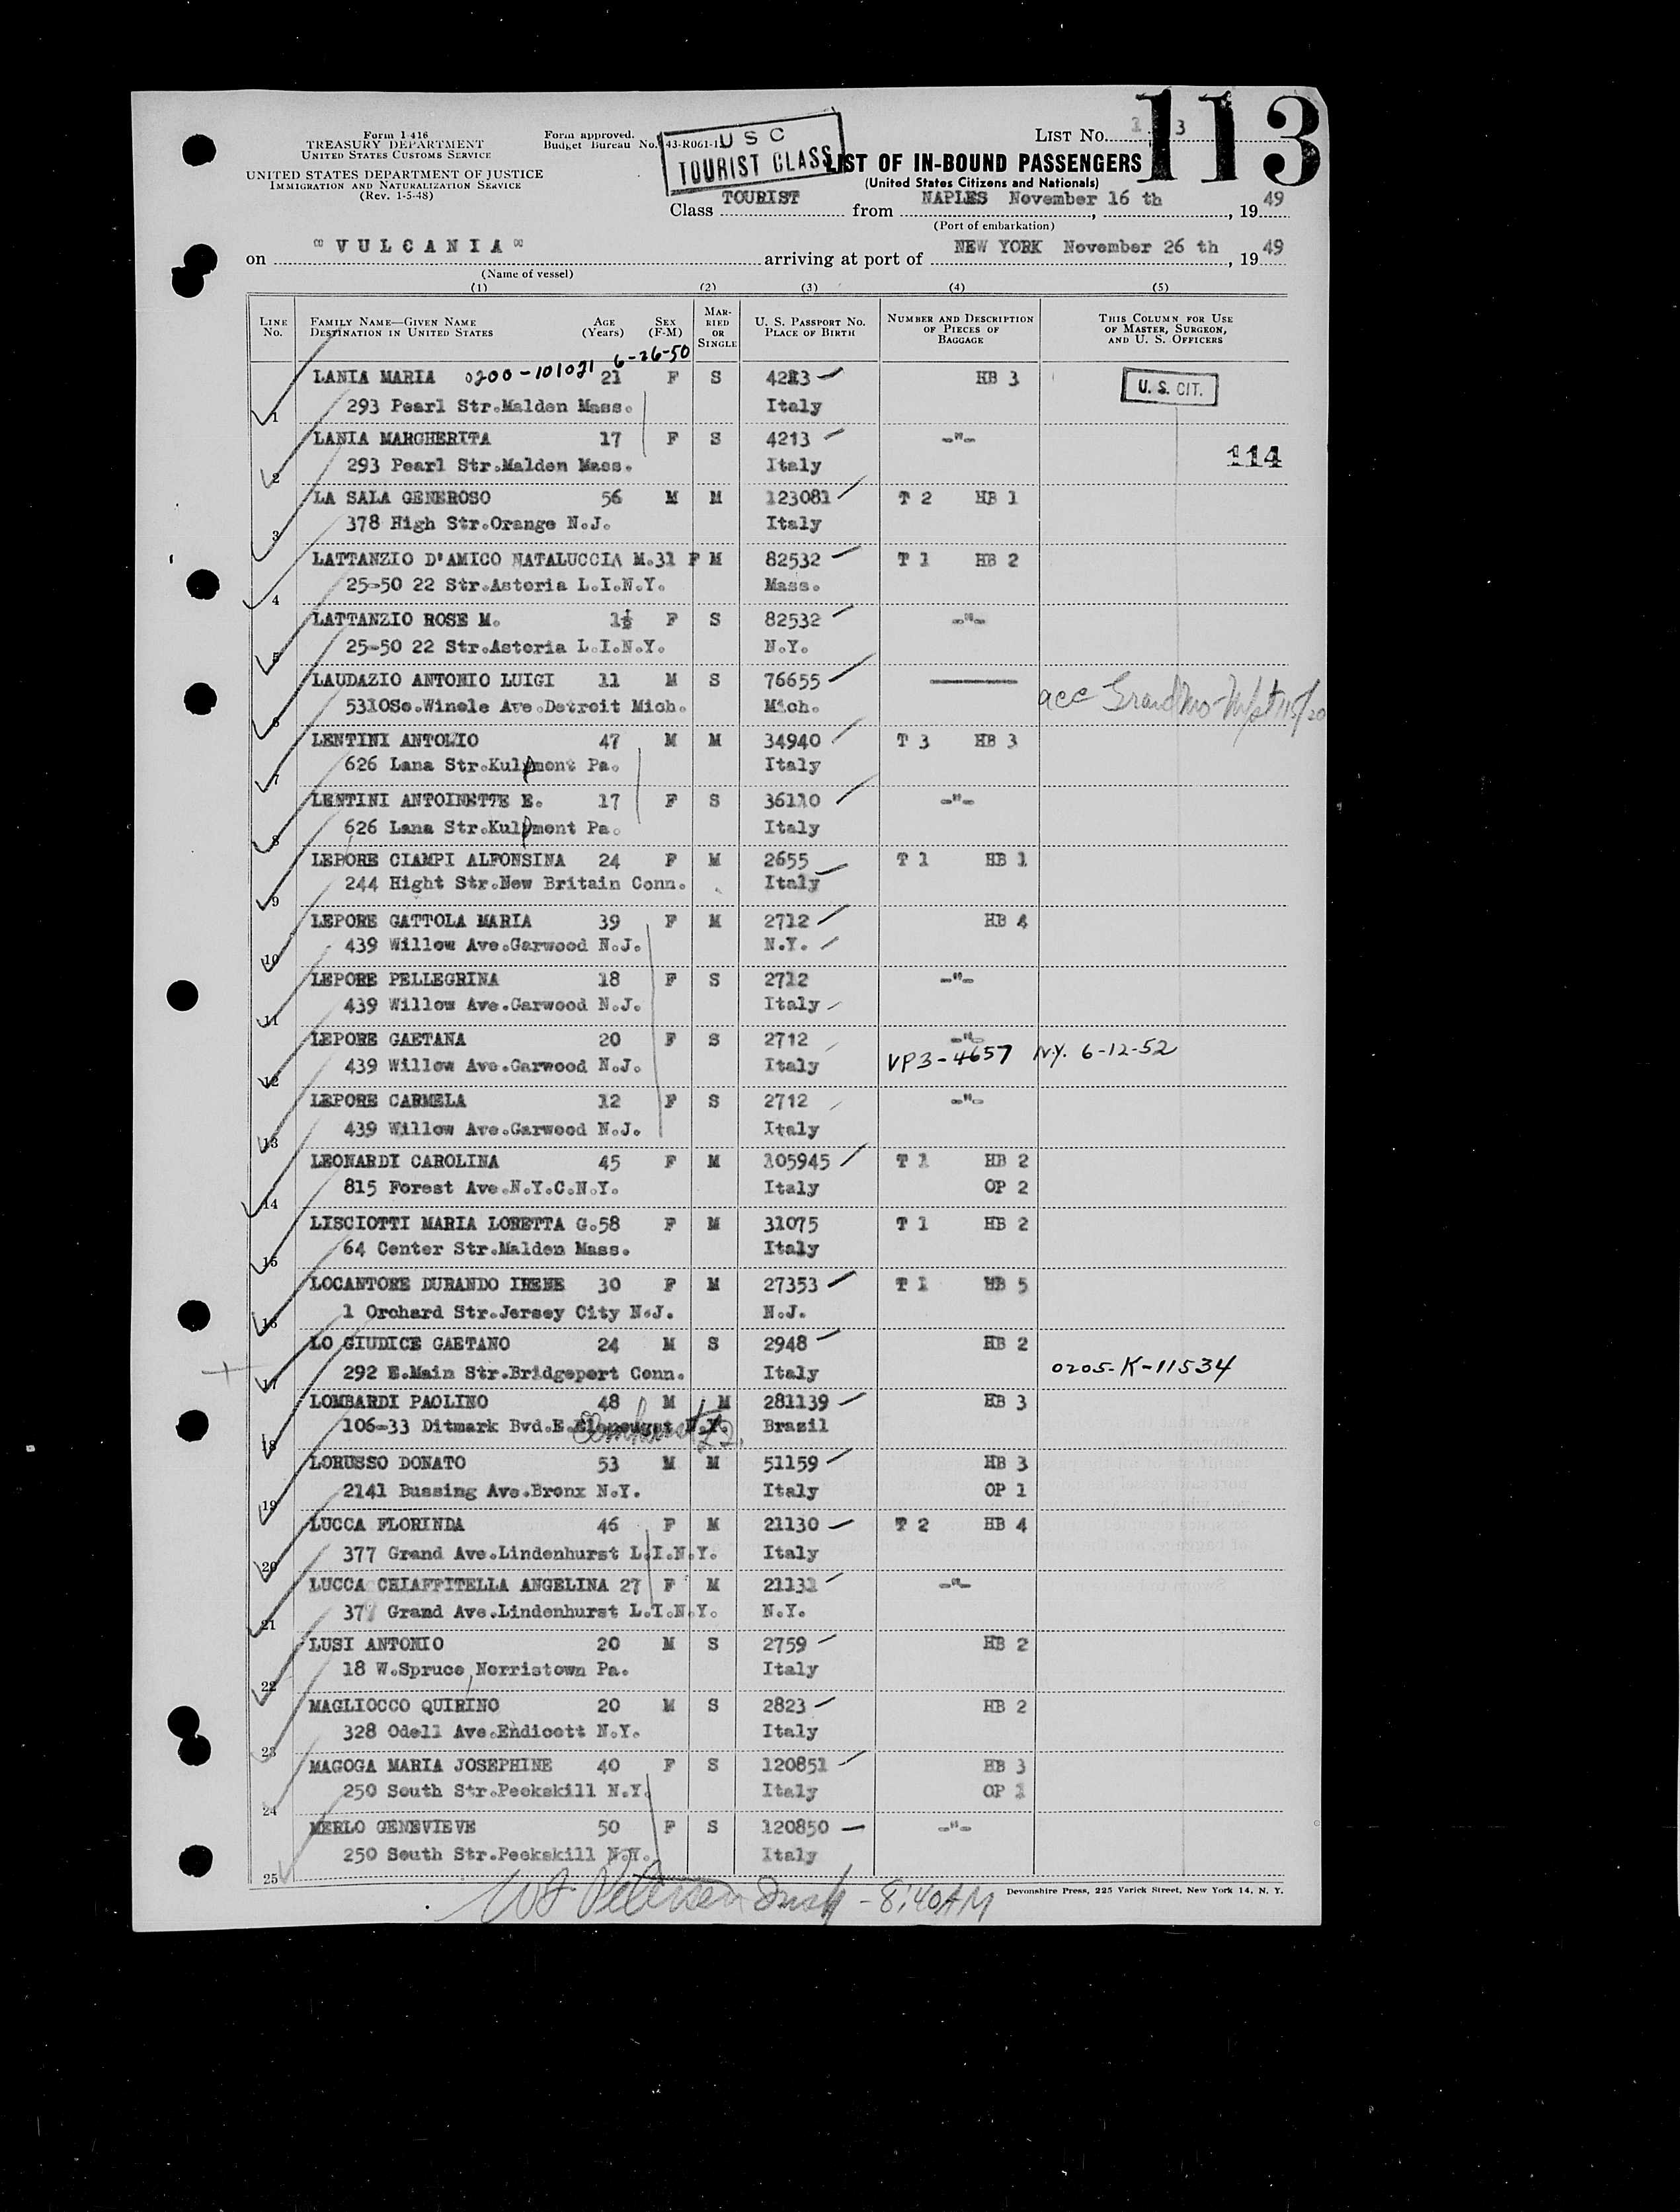 113
Form I-416
TREASURY DEPARTMENT
UNITED STATES CUSTOMS SERVICE
UNITED STATES DEPARTMENT OF JUSTICE
IMMIGRATION AND NATURALIZATION SERVICE
(Rev. 1-5-48)
Form approved.
Budget Bureau No. 43-R061-1
USC
TOURIST CLASS
LIST No. 1 3
LIST OF IN-BOUND PASSENGERS
(United States Citizens and Nationals)
Class TOURIST from NAPLES November 16 th, 1949
(Port of embarkation)
on "VULCANIA" arriving at port of NEW YORK November 26 th, 1949
(Name of vessel)
(1) (2) (3) (4) (5)
LINE No. FAMILY NAME—GIVEN NAME DESTINATION IN UNITED STATES AGE (Years) SEX (F-M) MARRIED OR SINGLE U. S. PASSPORT No. PLACE OF BIRTH NUMBER AND DESCRIPTION OF PIECES OF BAGGAGE THIS COLUMN FOR USE OF MASTER, SURGEON, AND U. S. OFFICERS
0200-101021 6-26-50
LANIA MARIA 21 F S 4213 HB 3 U. S. CIT.
1 293 Pearl Str.Malden Mass. Italy
LANIA MARGHERITA 17 F S 4213 -"- 114
2 293 Pearl Str.Malden Mass. Italy
LA SALA GENEROSO 56 M M 123081 T 2 HB 1
3 378 High Str.Orange N.J. Italy
LATTANZIO D'AMICO NATALUCCIA M.31 F M 82532 T 1 HB 2
4 25-50 22 Str.Astoria L.I.N.Y. Mass.
LATTANZIO ROSE M. 1½ F S 82532 -"-
5 25-50 22 Str.Astoria L.I.N.Y. N.Y.
LAUDAZIO ANTONIO LUIGI 11 M S 76655
6 5310So.Winele Ave.Detroit Mich. Mich. acc Grandmo
LENTINI ANTONIO 47 M M 34940 T 3 HB 3
7 626 Lana Str.Kulpmont Pa. Italy
LENTINI ANTOINETTE E. 17 F S 36110 -"-
8 626 Lana Str.Kulpmont Pa. Italy
LEPORE CIAMPI ALFONSINA 24 F M 2655 T 1 HB 1
9 244 Hight Str.New Britain Conn. Italy
LEPORE GATTOLA MARIA 39 F M 2712 HB 4
10 439 Willow Ave.Garwood N.J. N.Y.
LEPORE PELLEGRINA 18 F S 2712 -"-
11 439 Willow Ave.Garwood N.J. Italy
LEPORE GAETANA 20 F S 2712 -"-
12 439 Willow Ave.Garwood N.J. Italy VP3-4657 N.Y. 6-12-52
LEPORE CARMELA 12 F S 2712 -"-
13 439 Willow Ave.Garwood N.J. Italy
LEONARDI CAROLINA 45 F M 105945 T 1 HB 2
14 815 Forest Ave.N.Y.C.N.Y. Italy OP 2
LISCIOTTI MARIA LORETTA G.58 F M 31075 T 1 HB 2
15 64 Center Str.Malden Mass. Italy
LOCANTORE DURANDO IRENE 30 F M 27353 T 1 HB 5
16 1 Orchard Str.Jersey City N.J. N.J.
LO GIUDICE GAETANO 24 M S 2948 HB 2
17 292 E.Main Str.Bridgeport Conn. Italy 0205-K-11534
LOMBARDI PAOLINO 48 M M 281139 HB 3
18 106-33 Ditmark Bvd.E. N.Y. Brazil
LORUSSO DONATO 53 M M 51159 HB 3
19 2141 Bussing Ave.Bronx N.Y. Italy OP 1
LUCCA FLORINDA 46 F M 21130 T 2 HB 4
20 377 Grand Ave.Lindenhurst L.I.N.Y. Italy
LUCCA CHIAFFITELLA ANGELINA 27 F M 21131 -"-
21 377 Grand Ave.Lindenhurst L.I.N.Y. N.Y.
LUSI ANTONIO 20 M S 2759 HB 2
22 18 W.Spruce Norristown Pa. Italy
MAGLIOCCO QUIRINO 20 M S 2823 HB 2
23 328 Odell Ave.Endicott N.Y. Italy
MAGOGA MARIA JOSEPHINE 40 F S 120851 HB 3
24 250 South Str.Peekskill N.Y. Italy OP 1
MERLO GENEVIEVE 50 F S 120850 -"-
25 250 South Str.Peekskill N.Y. Italy
8:40AM
Devonshire Press, 225 Varick Street, New York 14, N. Y.